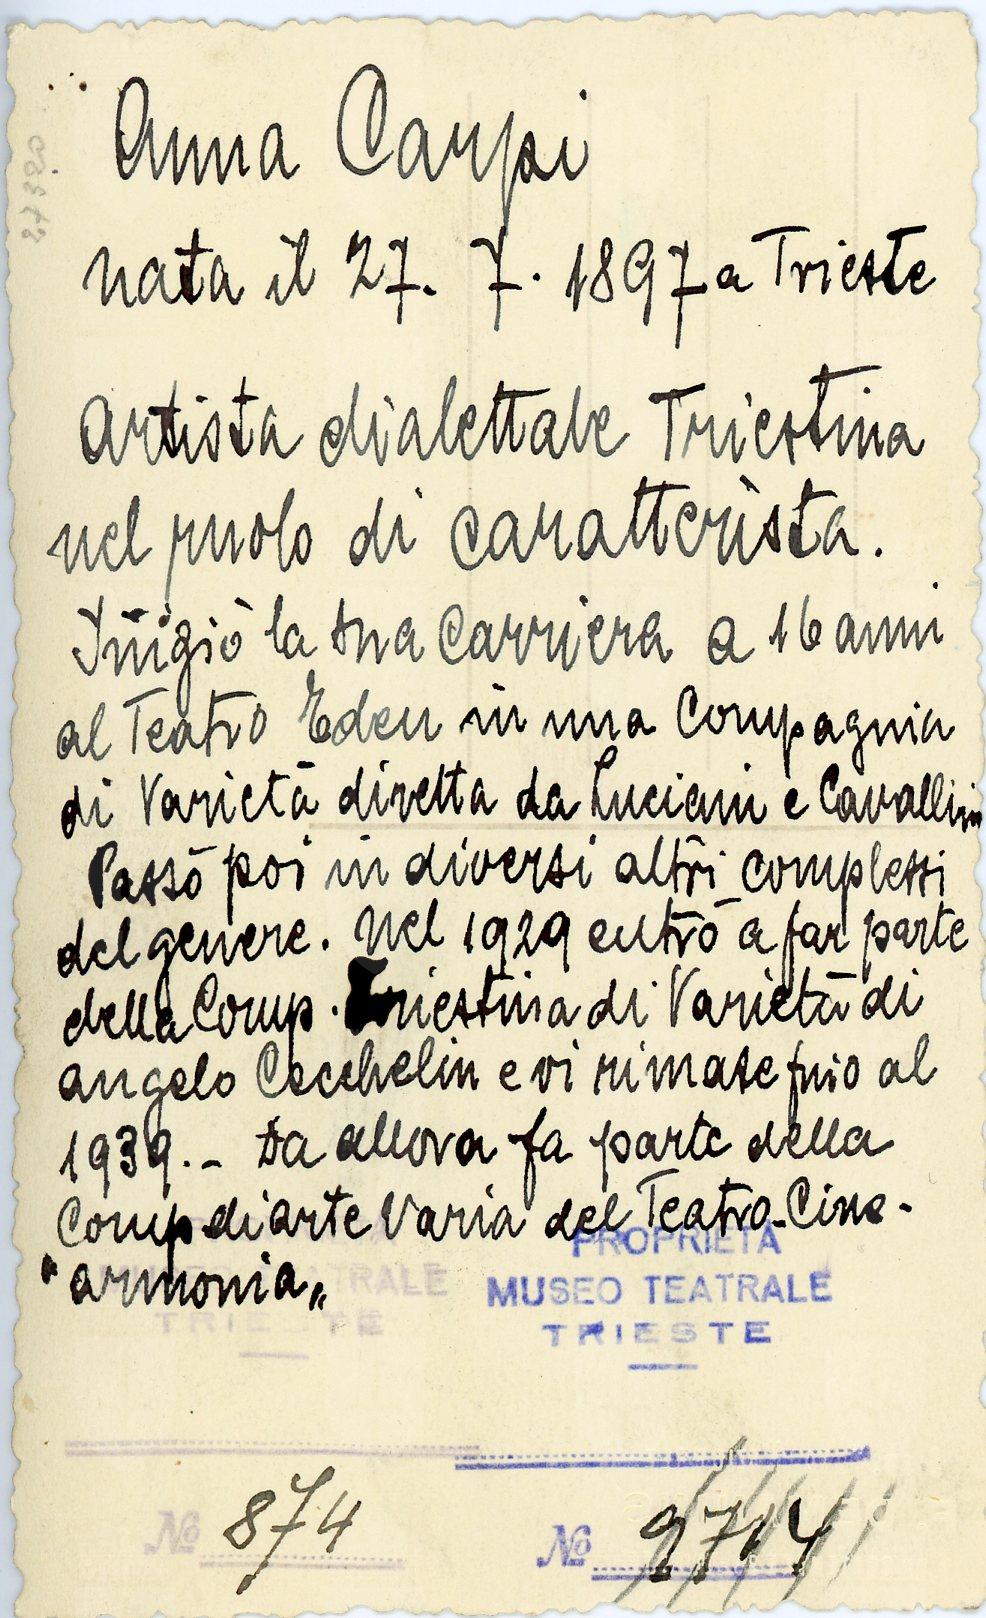 Anna Carpi
nata il 27. 7. 1897 a Trieste
Artista dialettale Triestina
nel ruolo di caratterista.
Iniziò la sua carriera a 16 anni
al Teatro Eden in una Compagnia
di Varietà diretta da Luciani e Cavallini
Passò poi in diversi altri complessi
del genere. Nel 1929 entrò a far parte
della Comp. Triestina di Varietà di
Angelo Cecchelin e vi rimase fino al
1939.- Da allora fa parte della
Comp. di arte Varia del Teatro-Cine-
"Armonia"
PROPRIETÀ
MUSEO TEATRALE
TRIESTE
TEATRALE
TRIESTE
№ 874
№